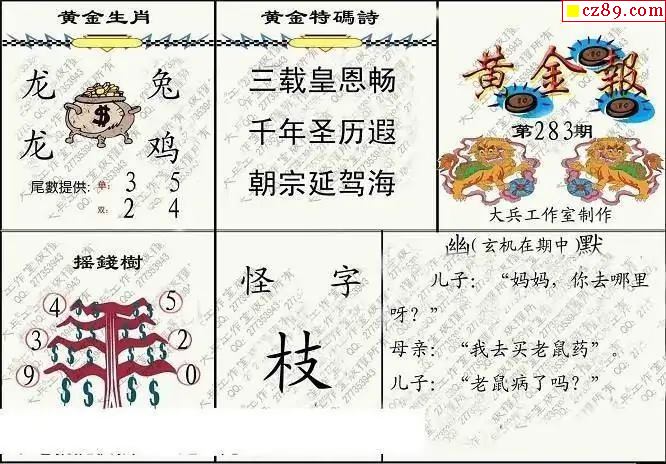 cz89.com
黄金生肖
龙 兔
龙 鸡
$
尾數提供: 单: 3 5
双: 2 4
黄金特碼詩
三载皇恩畅
千年圣历遐
朝宗延驾海
黄金報
第283期
大兵工作室制作
摇錢樹
4 5
3 2
9 0
怪 字
枝
幽(玄机在期中)默
儿子：“妈妈，你去哪里
呀？”
母亲：“我去买老鼠药”。
儿子：“老鼠病了吗？”